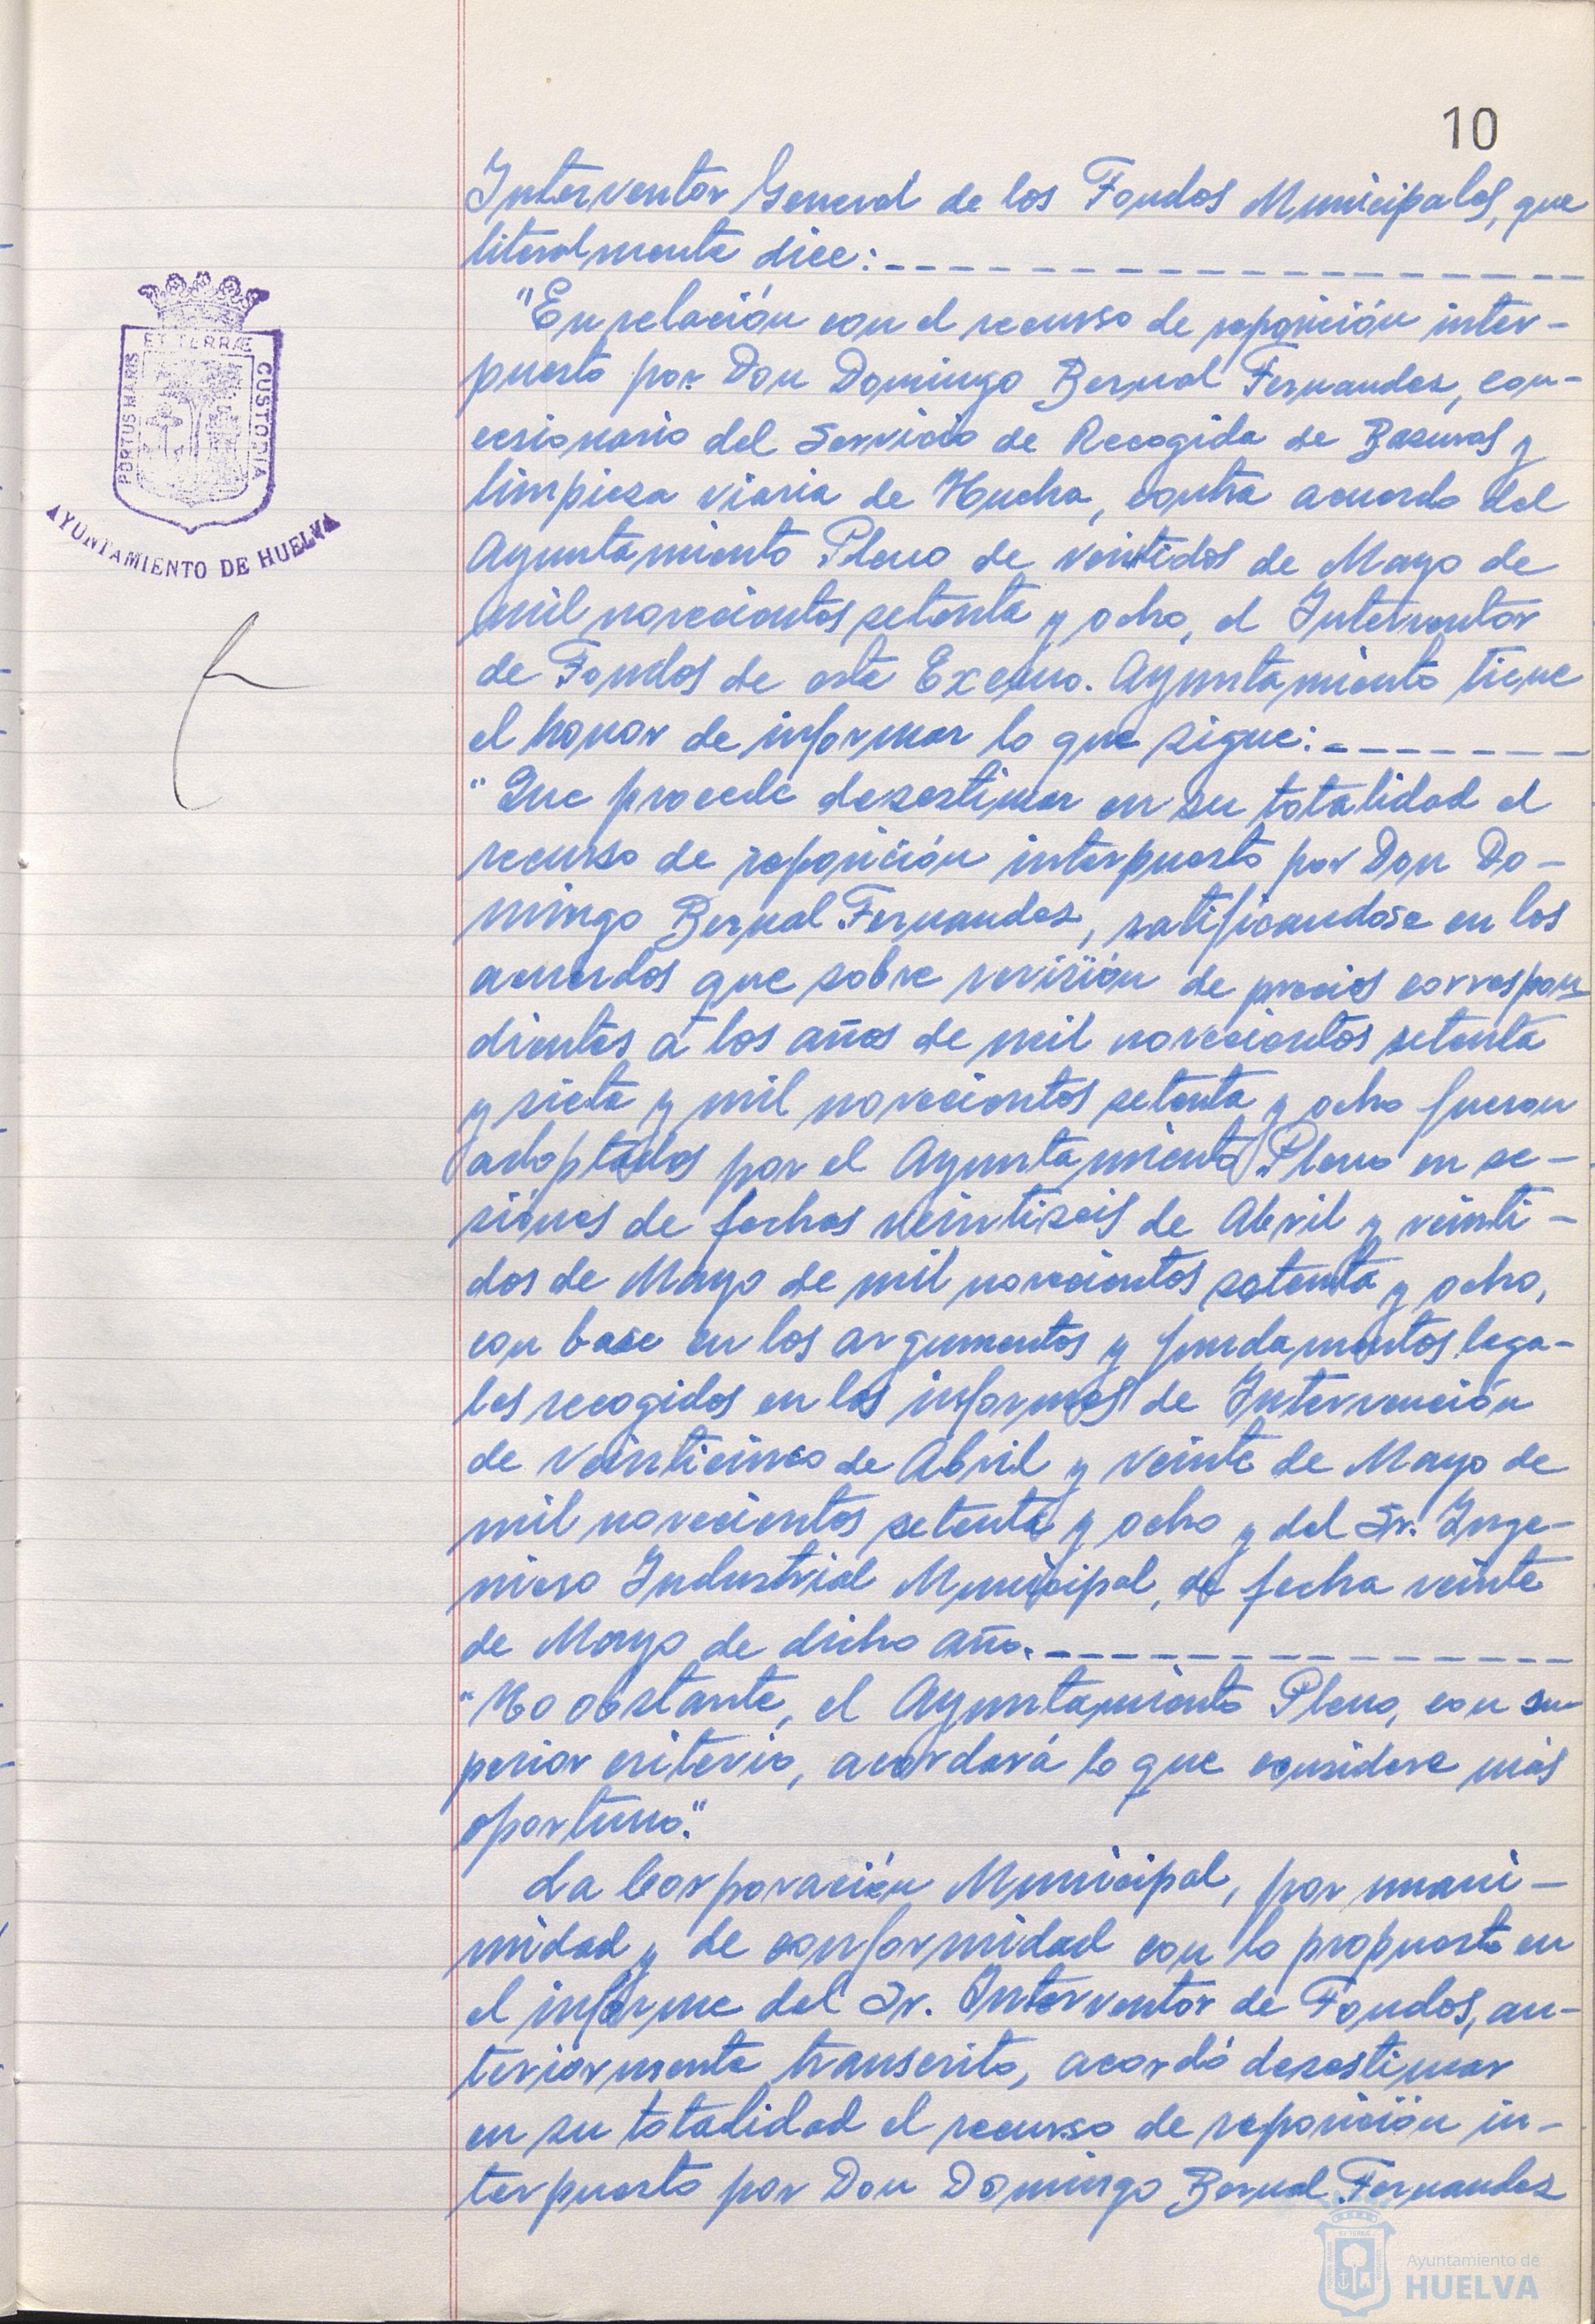 10
Interventor General de los Fondos Municipales, que
literalmente dice:
"En relación con el recurso de reposición inter-
puesto por Don Domingo Bernal Fernandez, con-
cesionario del Servicio de Recogida de Basuras y
limpieza viaria de Huelva, contra acuerdo del
Ayuntamiento Pleno de veintidos de Mayo de
mil novecientos setenta y ocho, el Interventor
de Fondos de este Excmo. Ayuntamiento tiene
el honor de informar lo que sigue:
"Que procede desestimar en su totalidad el
recurso de reposición interpuesto por Don Do-
mingo Bernal Fernandez, ratificandose en los
acuerdos que sobre revisión de precios correspon
dientes a los años de mil novecientos setenta
y siete y mil novecientos setenta y ocho fueron
adoptados por el Ayuntamiento Pleno en se-
siones de fechas veintiseis de Abril y veinti-
dos de Mayo de mil novecientos setenta y ocho,
con base en los argumentos y fundamentos lega-
les recogidos en los informes de Intervención
de veinticinco de Abril y veinte de Mayo de
mil novecientos setenta y ocho y del Sr. Inge-
niero Industrial Municipal, de fecha veinte
de Mayo de dicho año.
"No obstante, el Ayuntamiento Pleno, con su
perior criterio, acordará lo que considere más
oportuno."
La Corporación Municipal, por unani-
midad y de conformidad con lo propuesto en
el informe del Sr. Interventor de Fondos, an-
teriormente transcrito, acordó desestimar
en su totalidad el recurso de reposición in-
terpuesto por Don Domingo Bernal Fernandez
PORTUS MARIS
ET TERRÆ
CUSTODIA
AYUNTAMIENTO DE HUELVA
Ayuntamiento de
HUELVA